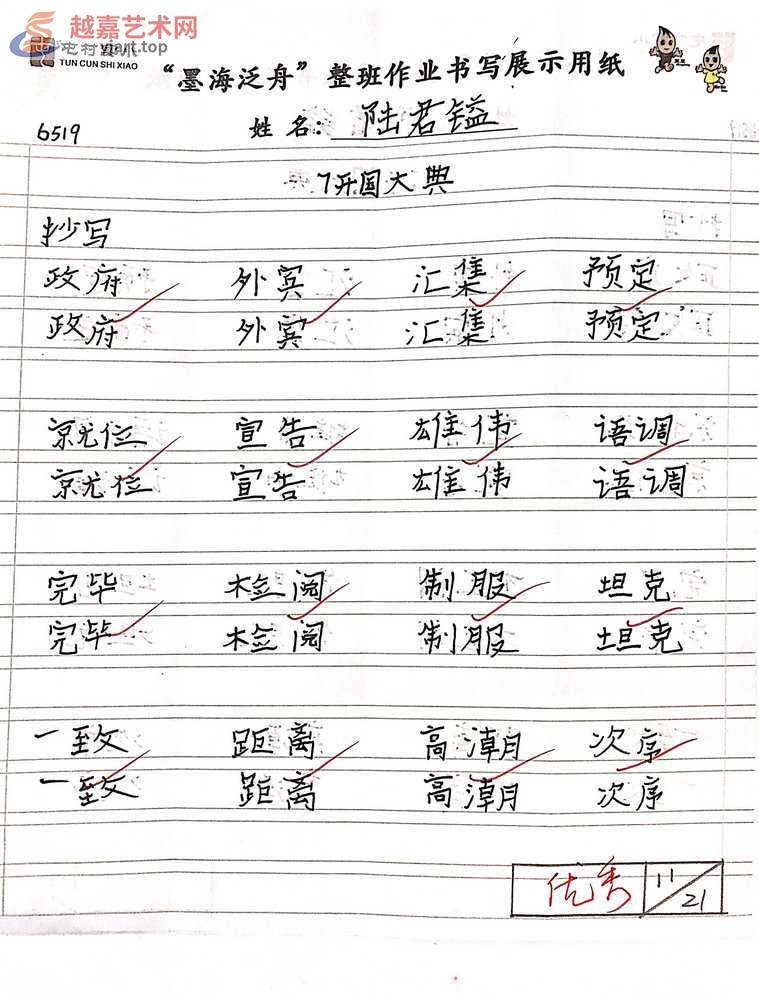 越嘉艺术网
yjart.top
TUN CUN SHI XIAO
“墨海泛舟”整班作业书写展示用纸
6519 姓名：陆君镒
7开国大典
抄写
政府 外宾 汇集 预定
政府 外宾 汇集 预定
就位 宣告 雄伟 语调
就位 宣告 雄伟 语调
完毕 检阅 制服 坦克
完毕 检阅 制服 坦克
一致 距离 高潮 次序
一致 距离 高潮 次序
优秀 11/21